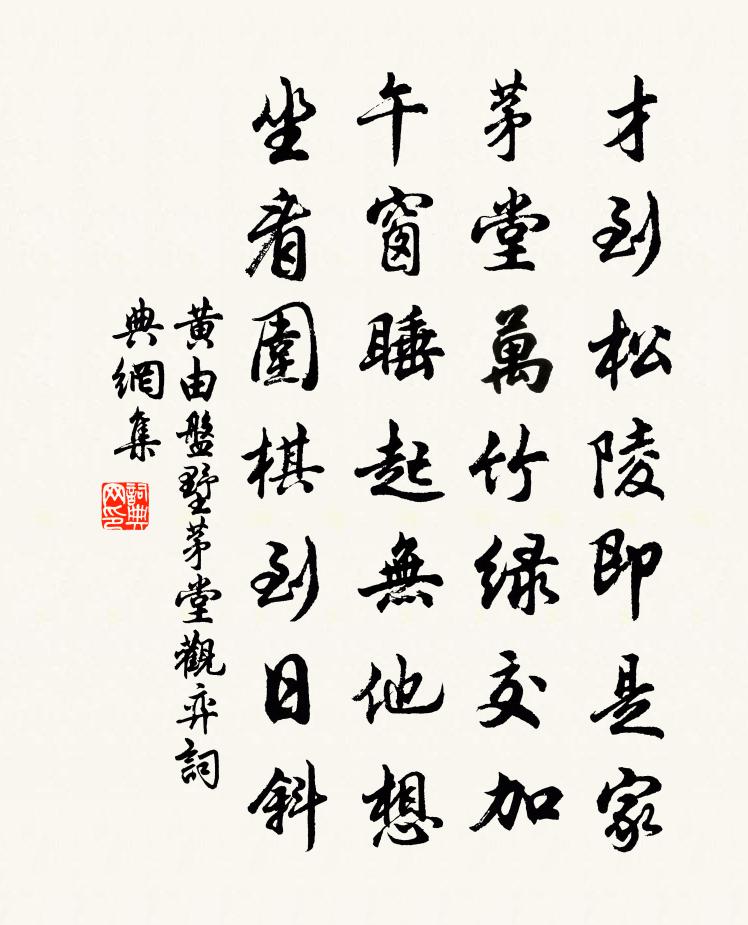 才到松陵即是家
茅堂萬竹緑交加
午窗睡起無他想
坐看圍棋到日斜
黄由盤墅茅堂觀弈詞
典網集
詞典
网印